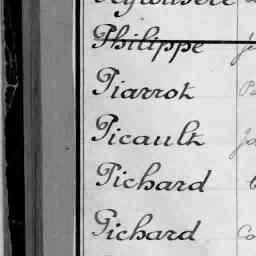 Philippe
Piarrot
Picault
Pichard
Pichard